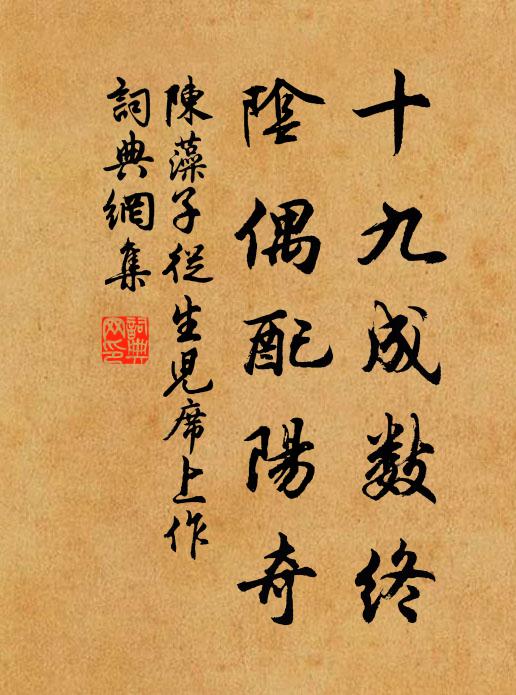 十九成数終
陰偶配陽奇
陳藻子從生兒席上作
詞典網集
詞典網印